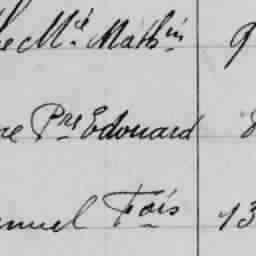 he Mie Mathin 9
re Prre Edouard 8
anuel Fois 13